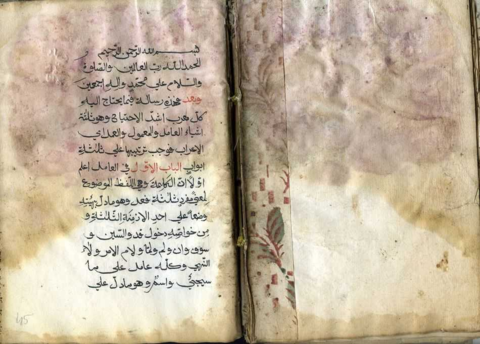 بسم الله الرحمن الرحيم
الحمد لله رب العالمين والصلوة
والسلام على محمد وآله اجمعين
وبعد فهذه رسالة فيما يحتاج اليه
كل معرب اشد الاحتياج وهو ثلثة
اشياء العامل والمعمول والعمل اى
الاعراب فوجب ترتيبها على ثلثة
ابواب الباب الاول فى العامل اعلم
اولا ان الكلمة وهى اللفظ الموضوع
لمعنى مفرد ثلثة فعل وهو ما دل بهيئته
وضعا على احد الازمنة الثلثة و
من خواصه دخول قد والسين و
سوف وان ولم ولما ولام الامر ولاء
النهى وكله عامل على ما
سيجئ واسم وهو ما دل على